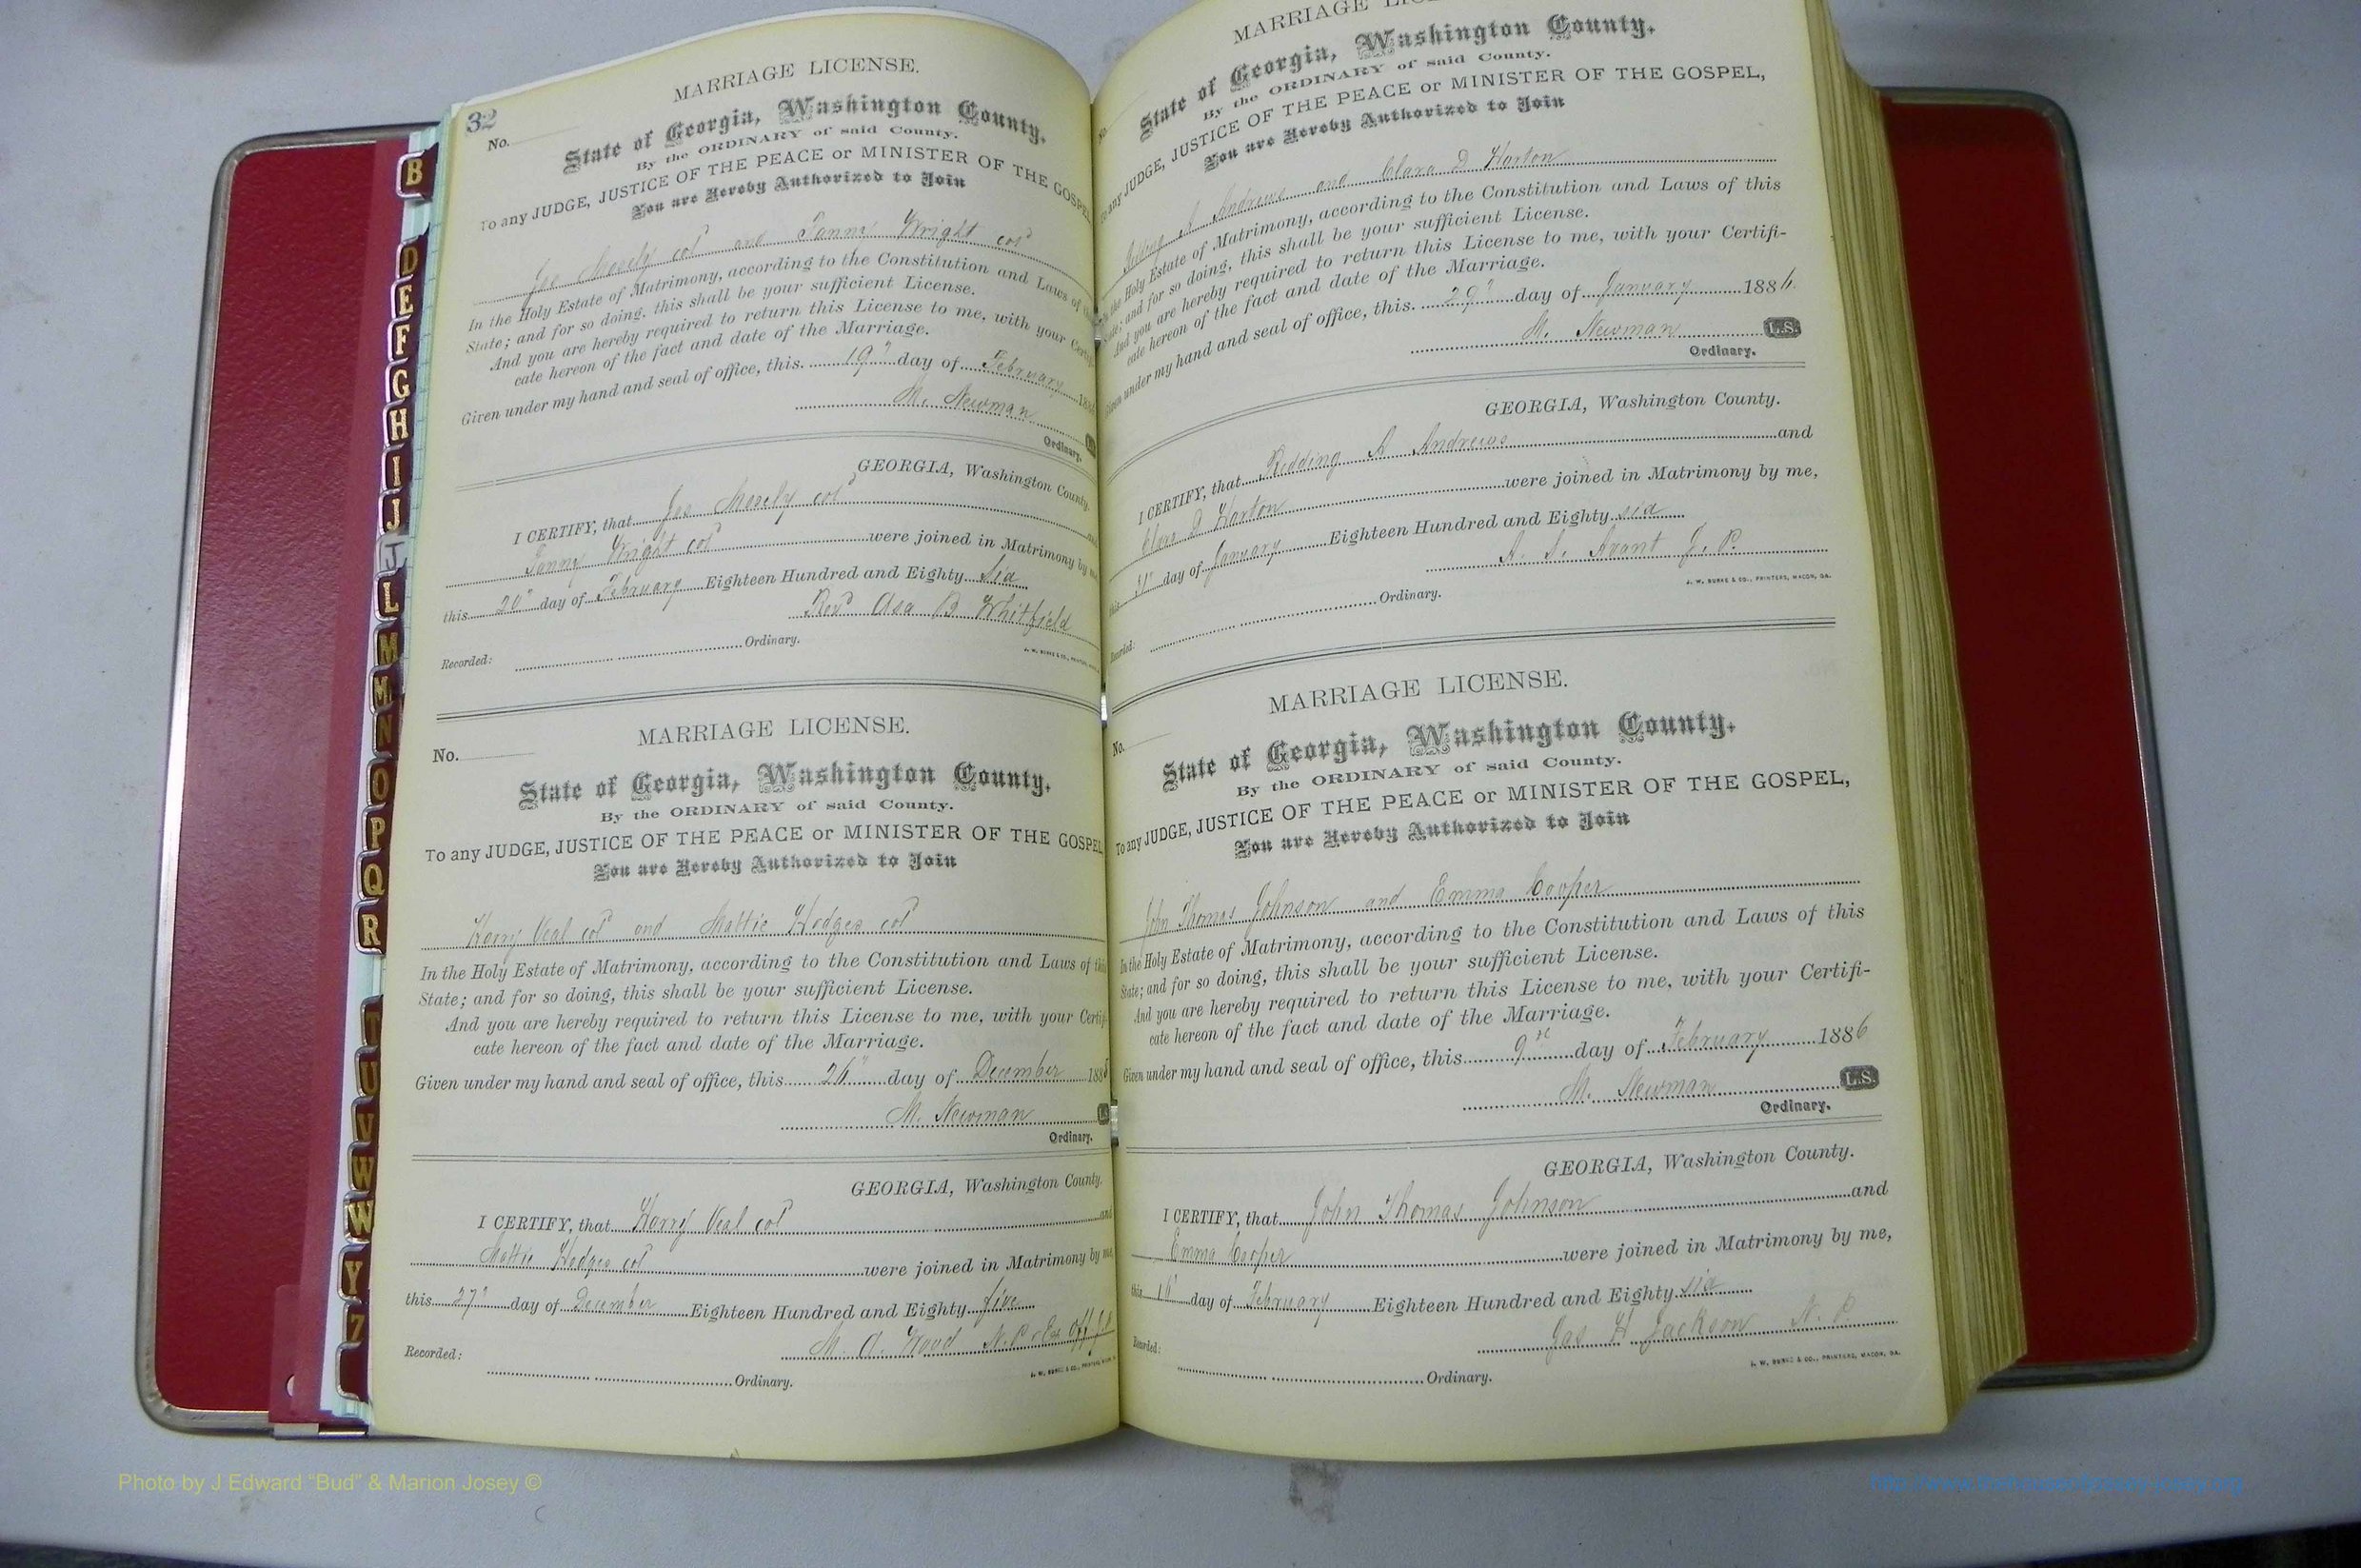 32
No.
MARRIAGE LICENSE.
State of Georgia, Washington County.
By the ORDINARY of said County.
To any JUDGE, JUSTICE OF THE PEACE or MINISTER OF THE GOSPEL
You are Hereby Authorized to Join
Joe Mosely col and Fanny Wright col
In the Holy Estate of Matrimony, according to the Constitution and Laws of
State; and for so doing, this shall be your sufficient License.
And you are hereby required to return this License to me, with your Certifi
cate hereon of the fact and date of the Marriage.
Given under my hand and seal of office, this 19" day of February 188
M. Newman
Ordinary.
GEORGIA, Washington County.
I CERTIFY, that Joe Mosely col and
Fanny Wright col were joined in Matrimony by me
this 20" day of February Eighteen Hundred and Eighty six
Revd Asa B Whitfield
Recorded: Ordinary.
J. W. BURKE & CO., PRINTERS,
MARRIAGE LICENSE.
No.
State of Georgia, Washington County.
By the ORDINARY of said County.
To any JUDGE, JUSTICE OF THE PEACE or MINISTER OF THE GOSPEL
You are Hereby Authorized to Join
Harry Veal col and Mattie Hodges col
In the Holy Estate of Matrimony, according to the Constitution and Laws of this
State; and for so doing, this shall be your sufficient License.
And you are hereby required to return this License to me, with your Certifi
cate hereon of the fact and date of the Marriage.
Given under my hand and seal of office, this 26" day of December 188
M. Newman
Ordinary.
GEORGIA, Washington County.
I CERTIFY, that Harry Veal col and
Mattie Hodges col were joined in Matrimony by me
this 27" day of December Eighteen Hundred and Eighty five
M. A. Wood N.P. & Ex off J.P.
Recorded: Ordinary.
J. W. BURKE & CO., PRINTERS,
MARRIAGE
No.
State of Georgia, Washington County.
By the ORDINARY of said County.
To any JUDGE, JUSTICE OF THE PEACE or MINISTER OF THE GOSPEL,
You are Hereby Authorized to Join
A Andrews and Clara D Horton
In the Holy Estate of Matrimony, according to the Constitution and Laws of this
State; and for so doing, this shall be your sufficient License.
And you are hereby required to return this License to me, with your Certifi-
cate hereon of the fact and date of the Marriage.
Given under my hand and seal of office, this 29" day of January 1886
M. Newman L.S.
Ordinary.
GEORGIA, Washington County.
I CERTIFY, that Redding A Andrews and
Clara D Horton were joined in Matrimony by me,
this 31" day of January Eighteen Hundred and Eighty six
A. S. Avant J. P.
J. W. BURKE & CO., PRINTERS, MACON, GA.
Recorded: Ordinary.
MARRIAGE LICENSE.
No.
State of Georgia, Washington County.
By the ORDINARY of said County.
To any JUDGE, JUSTICE OF THE PEACE or MINISTER OF THE GOSPEL,
You are Hereby Authorized to Join
John Thomas Johnson and Emma Cooper
In the Holy Estate of Matrimony, according to the Constitution and Laws of this
State; and for so doing, this shall be your sufficient License.
And you are hereby required to return this License to me, with your Certifi-
cate hereon of the fact and date of the Marriage.
Given under my hand and seal of office, this 9th day of February 1886
M. Newman L.S.
Ordinary.
GEORGIA, Washington County.
I CERTIFY, that John Thomas Johnson and
Emma Cooper were joined in Matrimony by me,
this day of February Eighteen Hundred and Eighty six
Jas H Jackson N. P.
J. W. BURKE & CO., PRINTERS, MACON, GA.
Recorded: Ordinary.
B
D
E
F
G
H
I
J
J
L
M
M
N
O
P
Q
R
T
U
V
W
W
Y
Z
Photo by J Edward “Bud” & Marion Josey ©